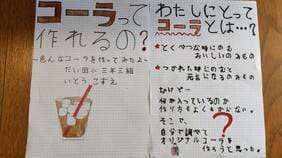 コーラって
作れるの？
～色んなコーラを作ってみたよ～
だい田小 三年三組
いとう こずえ
わたしにとって
コーラとは…？
・とくべつな時にのむ
おいしいのもの
・つかれた時にのむと
元気になるのもの
ないど…
何が入っているのか
作り方もよくわからない。
そこで、
自分で調べて
オリジナルコーラを
作ろうと思った。